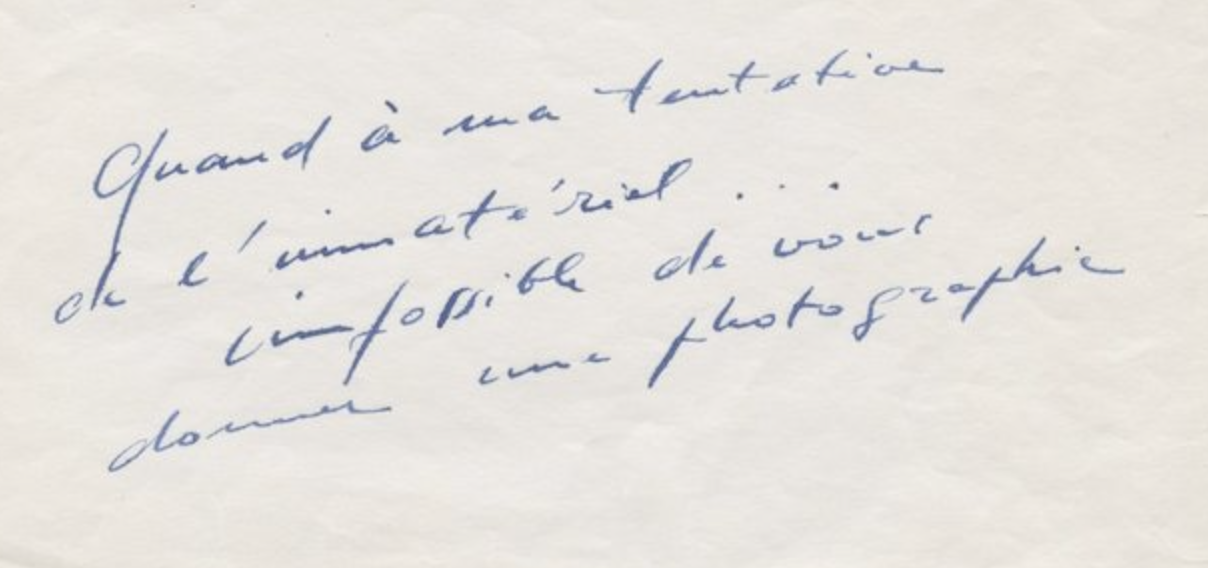 Quand à ma tentative
de l'immatériel ...
impossible de vous
donner une photographie